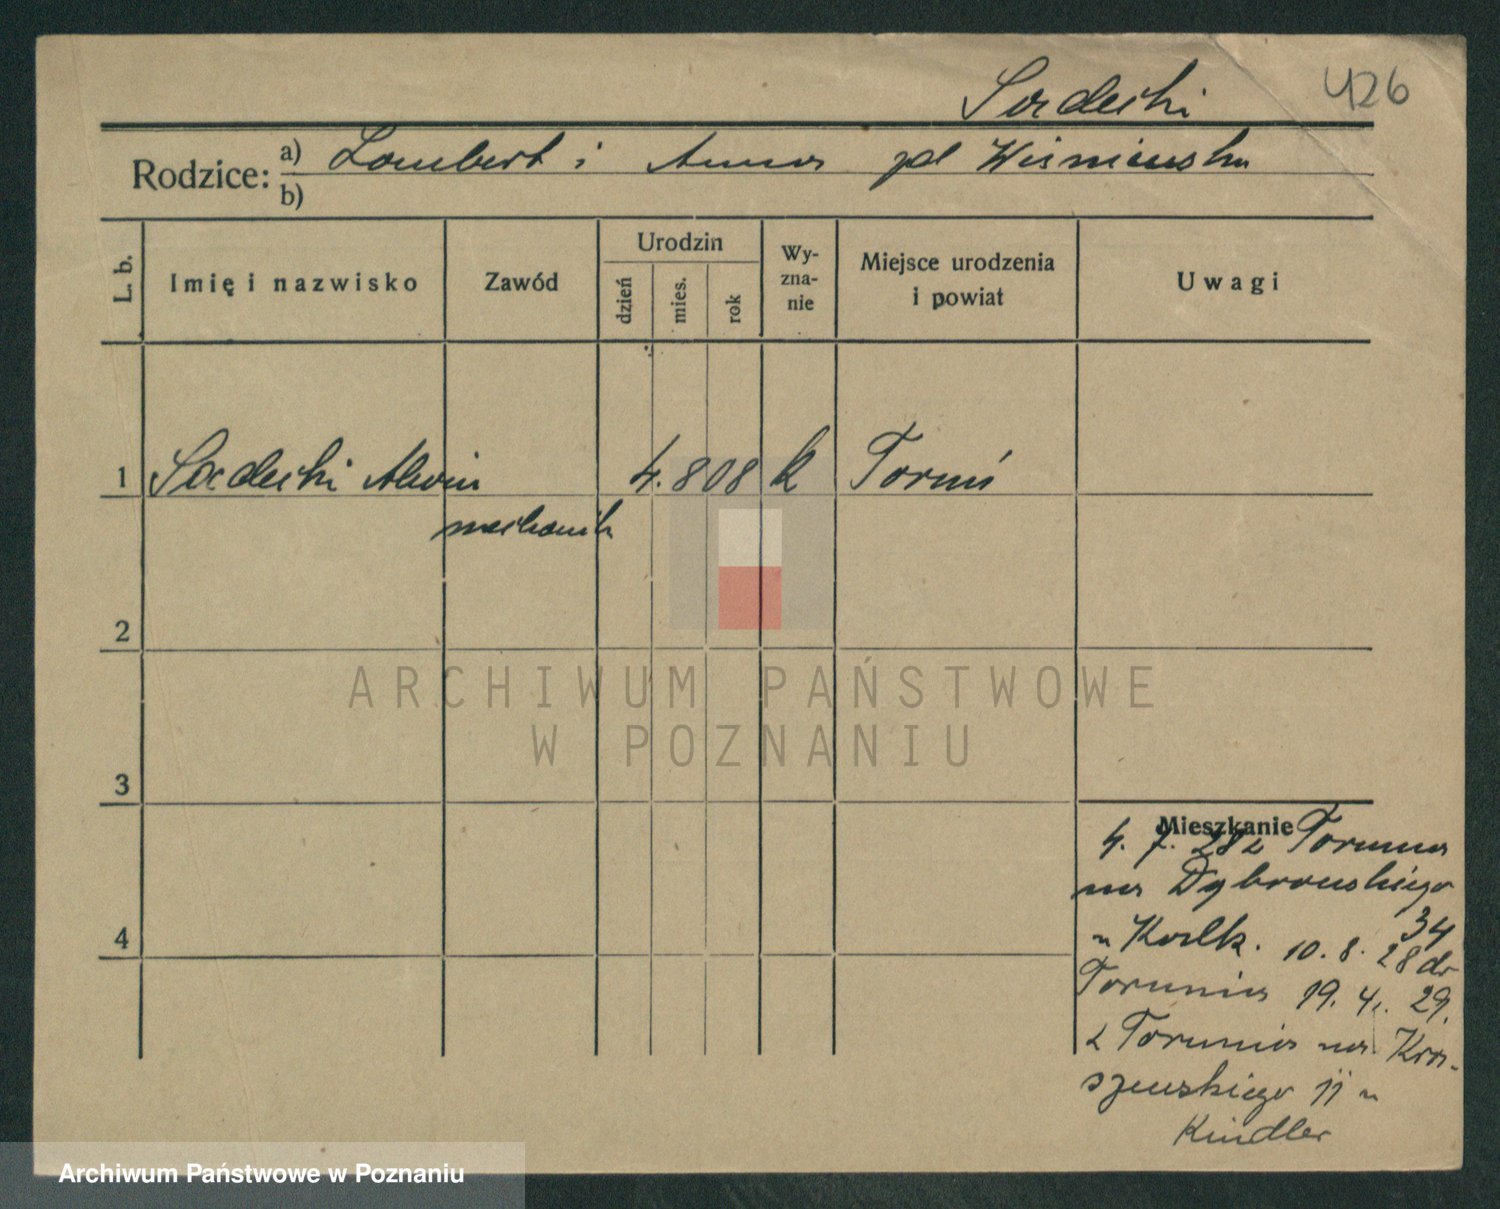 Sadecki
426
Rodzice: a) Lambert i Anna zd Wiśniewska
b)
L. b.
Imię i nazwisko
Zawód
Urodzin
dzień
mies.
rok
Wy-
zna-
nie
Miejsce urodzenia
i powiat
Uwagi
1 Sadecki Alwin 4. 8 08 k Toruń
mechanik
2
3
4
Mieszkanie
4. 7. 28 z Torunia
na Dąbrowskiego
34
u 10. 8. 28 do
Torunia 19. 4. 29.
z Torunia na Kra-
szewskiego 11 u
Kindler
ARCHIWUM PAŃSTWOWE
W POZNANIU
Archiwum Państwowe w Poznaniu